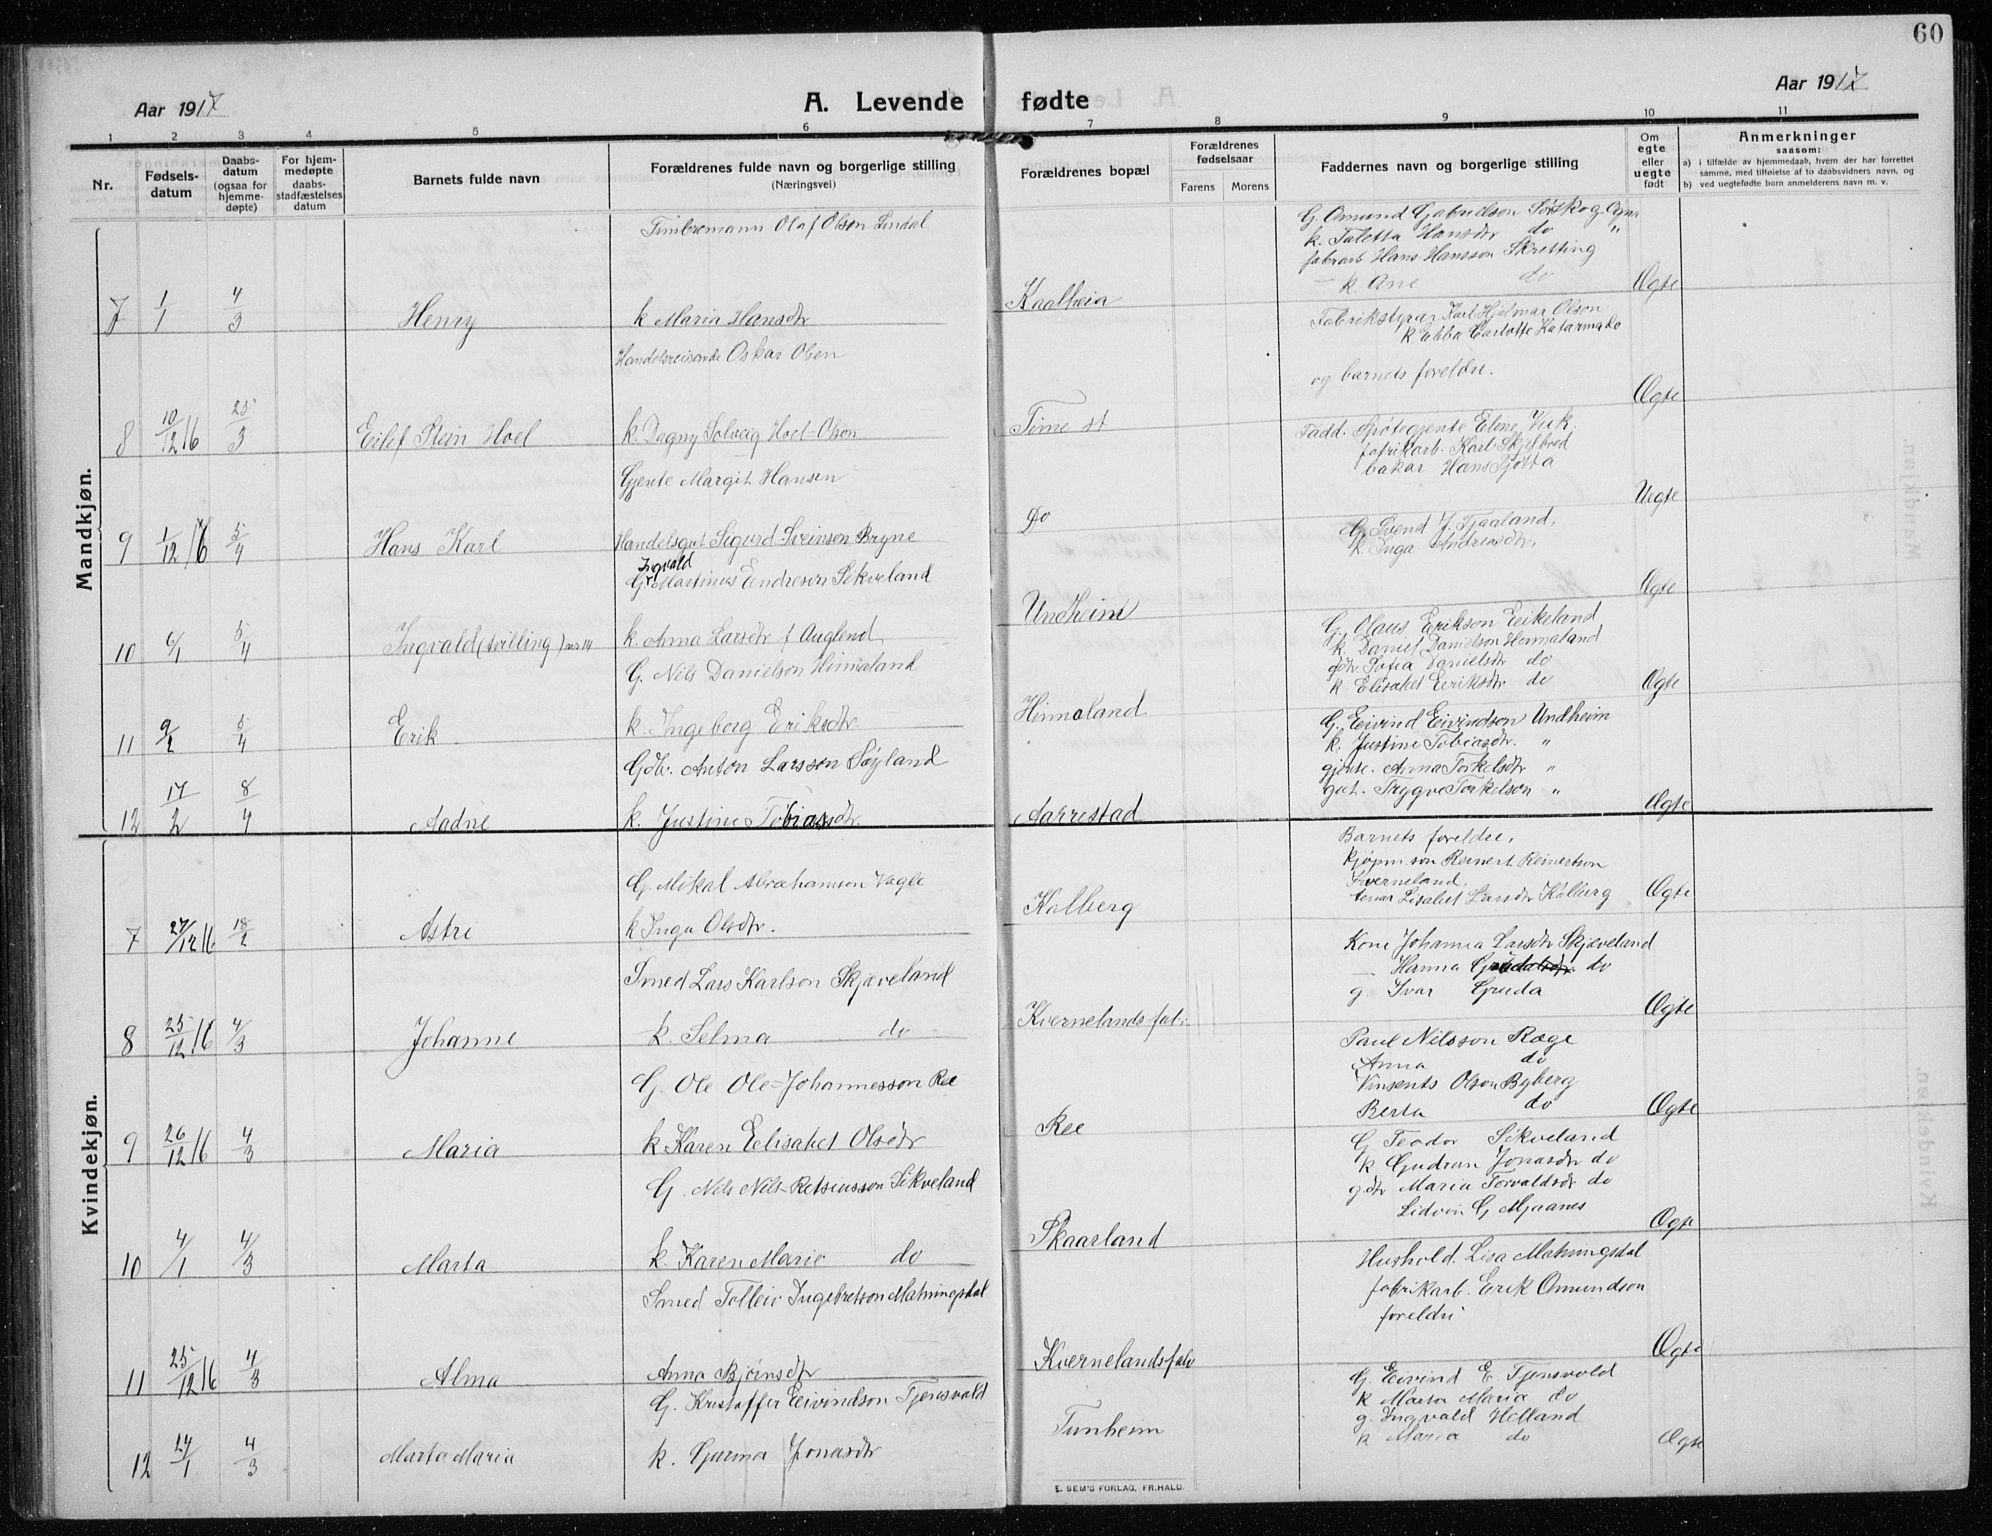 60
Aar 1917
A. Levende fødte
Aar 1917
1 2 3 4 5 6 7 8 9 10 11
Nr.
Fødsels-
datum
Daabs-
datum
(ogsaa for
hjemme-
døpte)
For hjem-
medøpte
daabs-
stadfæstelses
datum
Barnets fulde navn
Forældrenes fulde navn og borgerlige stilling
(Næringsvei)
Forældrenes bopæl
Forældrenes
fødselsaar
Farens Morens
Faddernes navn og borgerlige stilling
Om
egte
eller
uegte
født
Anmerkninger
saasom:
a) i tilfælde av hjemmedaab, hvem der har forrettet
samme, med tilføielse af to daabsvidners navn, og
b) ved uegtefødte barn anmelderens navn m. v.
Mandkjøn.
7 1/1 4/3 Henry
Timbremann Olaf Olson Lindal
k Maria Hansdtr
Kaalheia
G. Omund Gabrielson
k. Taletta Hansdtr do "
fabrarb Hans Hansson Skretting
— k. Ane do
Ægte
8 10/12 16 25/3 Eilef Stein Hoel
Handelsreisande Oskar Olsen
k. Dagny Solveig Hoel-Olson
Time st
Fabrikstyrar Karl Hjalmar Olson
k Ebba Carlotte Katarina do
og barnets foreldre.
Ægte
9 1/12 16 5/4 Hans Karl
Gjente Margit Hansen
Handelsgut Sigurd Sveinsen Bryne
Do
Fadd. Gjente Eline
fabrikarb. Karl Skjelbred
bakar Hans Sjøtta
Uegte
10 6/1 5/4 Ingvald (tvilling) nr 14
Ingvald
G. Martinus Endreson Sikveland
k. Anna Larsdtr f Auglend
Undheim
G. Svend J. Tjaaland,
k. Inga Andreasdtr,
Ægte
11 9/2 5/4 Erik
G. Nils Danielson Hinnaland
k. Ingeborg Eriksdtr.
Hinnaland
G. Olaus Erikson Eeikeland
k. Daniel Danielson Hinnaland
gdtr. Sofia Danielsdtr do
k Elisabet Eeriksdtr do
Ægte
12 17/2 8/4 Aadne
Gdbr. Anton Larsson Søyland
k. Justine Tobiasdtr.
Aarrestad
G. Eivind Eivindson Undheim
k. Justine Tobiasdtr. "
gjente. Anna Torkelsdtr "
gut. Trygve Torkelson "
Ægte
Kvindekjøn.
7 27/12 16 18/2 Astri
G. Mikal Abrahamson Vagle
k Inga Olsdtr.
Kalberg
Barnets foreldre,
kjøpm. son Reinert Reinertson
Kverneland,
Lisabet Larsdtr Kalberg
Ægte
8 25/12 16 4/3 Johanne
Smed Lars Karlson Skjæveland
k. Selma do
Kvernelands fab.
Kone Johanna Larsdtr Skjæveland
— Hanna do
g. Ivar Gruda
Ægte
9 26/12 16 4/3 Maria
G. Ole Ole-Johannesson Ree
k Karen Eelisabet Olsdtr
Ree
Paul Nilsson Ræge
Anna do
Vinsents Olson Byberg
Berta do
Ægte
10 4/1 4/3 Marta
G. Nils Nils-Retsiusson Sikveland
k. Karen Marie do
Skaarland
G Teodor Sikveland
k Gudrun Jonasdtr do
g.dtr Maria Torvaldsdr do
Lidvin G Mjaanes
Ægte
11 25/12 16 4/3 Alma
Smed Tolleiv Ingebretson Matningsdal
Anna Bjørnsdtr
Kvernelandsfab
Hushold. Lisa Matningsdal
fabrikarb. Eerik Omundson
foreldri
Ægte
12 24/1 4/3 Marta Maria
G. Kristoffer Eeivindson Tjensvold
k. Gurina Jonasdtr
Tunheim
G. Eeivind E. Tjensvold
k Marta Maria do
g. Ingvald Helland
k Maria do
Ægte
E. SEM'S FORLAG, FR.HALD.